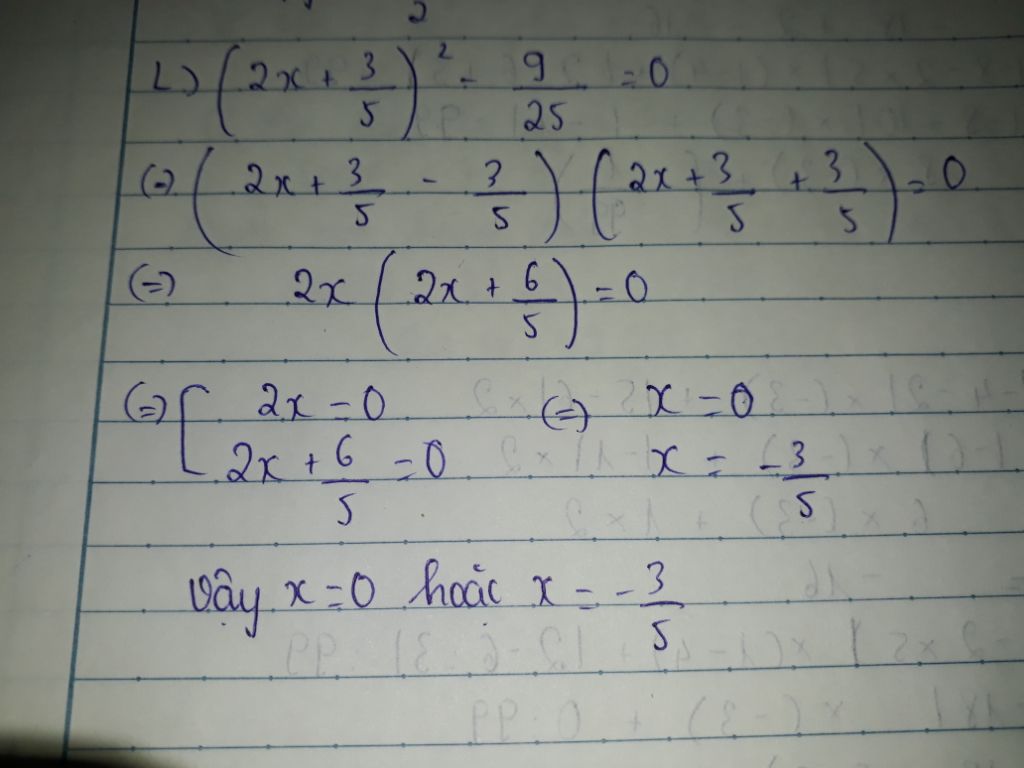 L) (2x + 3/5)² - 9/25 = 0
(=) (2x + 3/5 - 3/5) (2x + 3/5 + 3/5) = 0
(=) 2x (2x + 6/5) = 0
(=) [ 2x = 0 (=) x = 0
2x + 6/5 = 0 x = -3/5
Vậy x = 0 hoặc x = -3/5